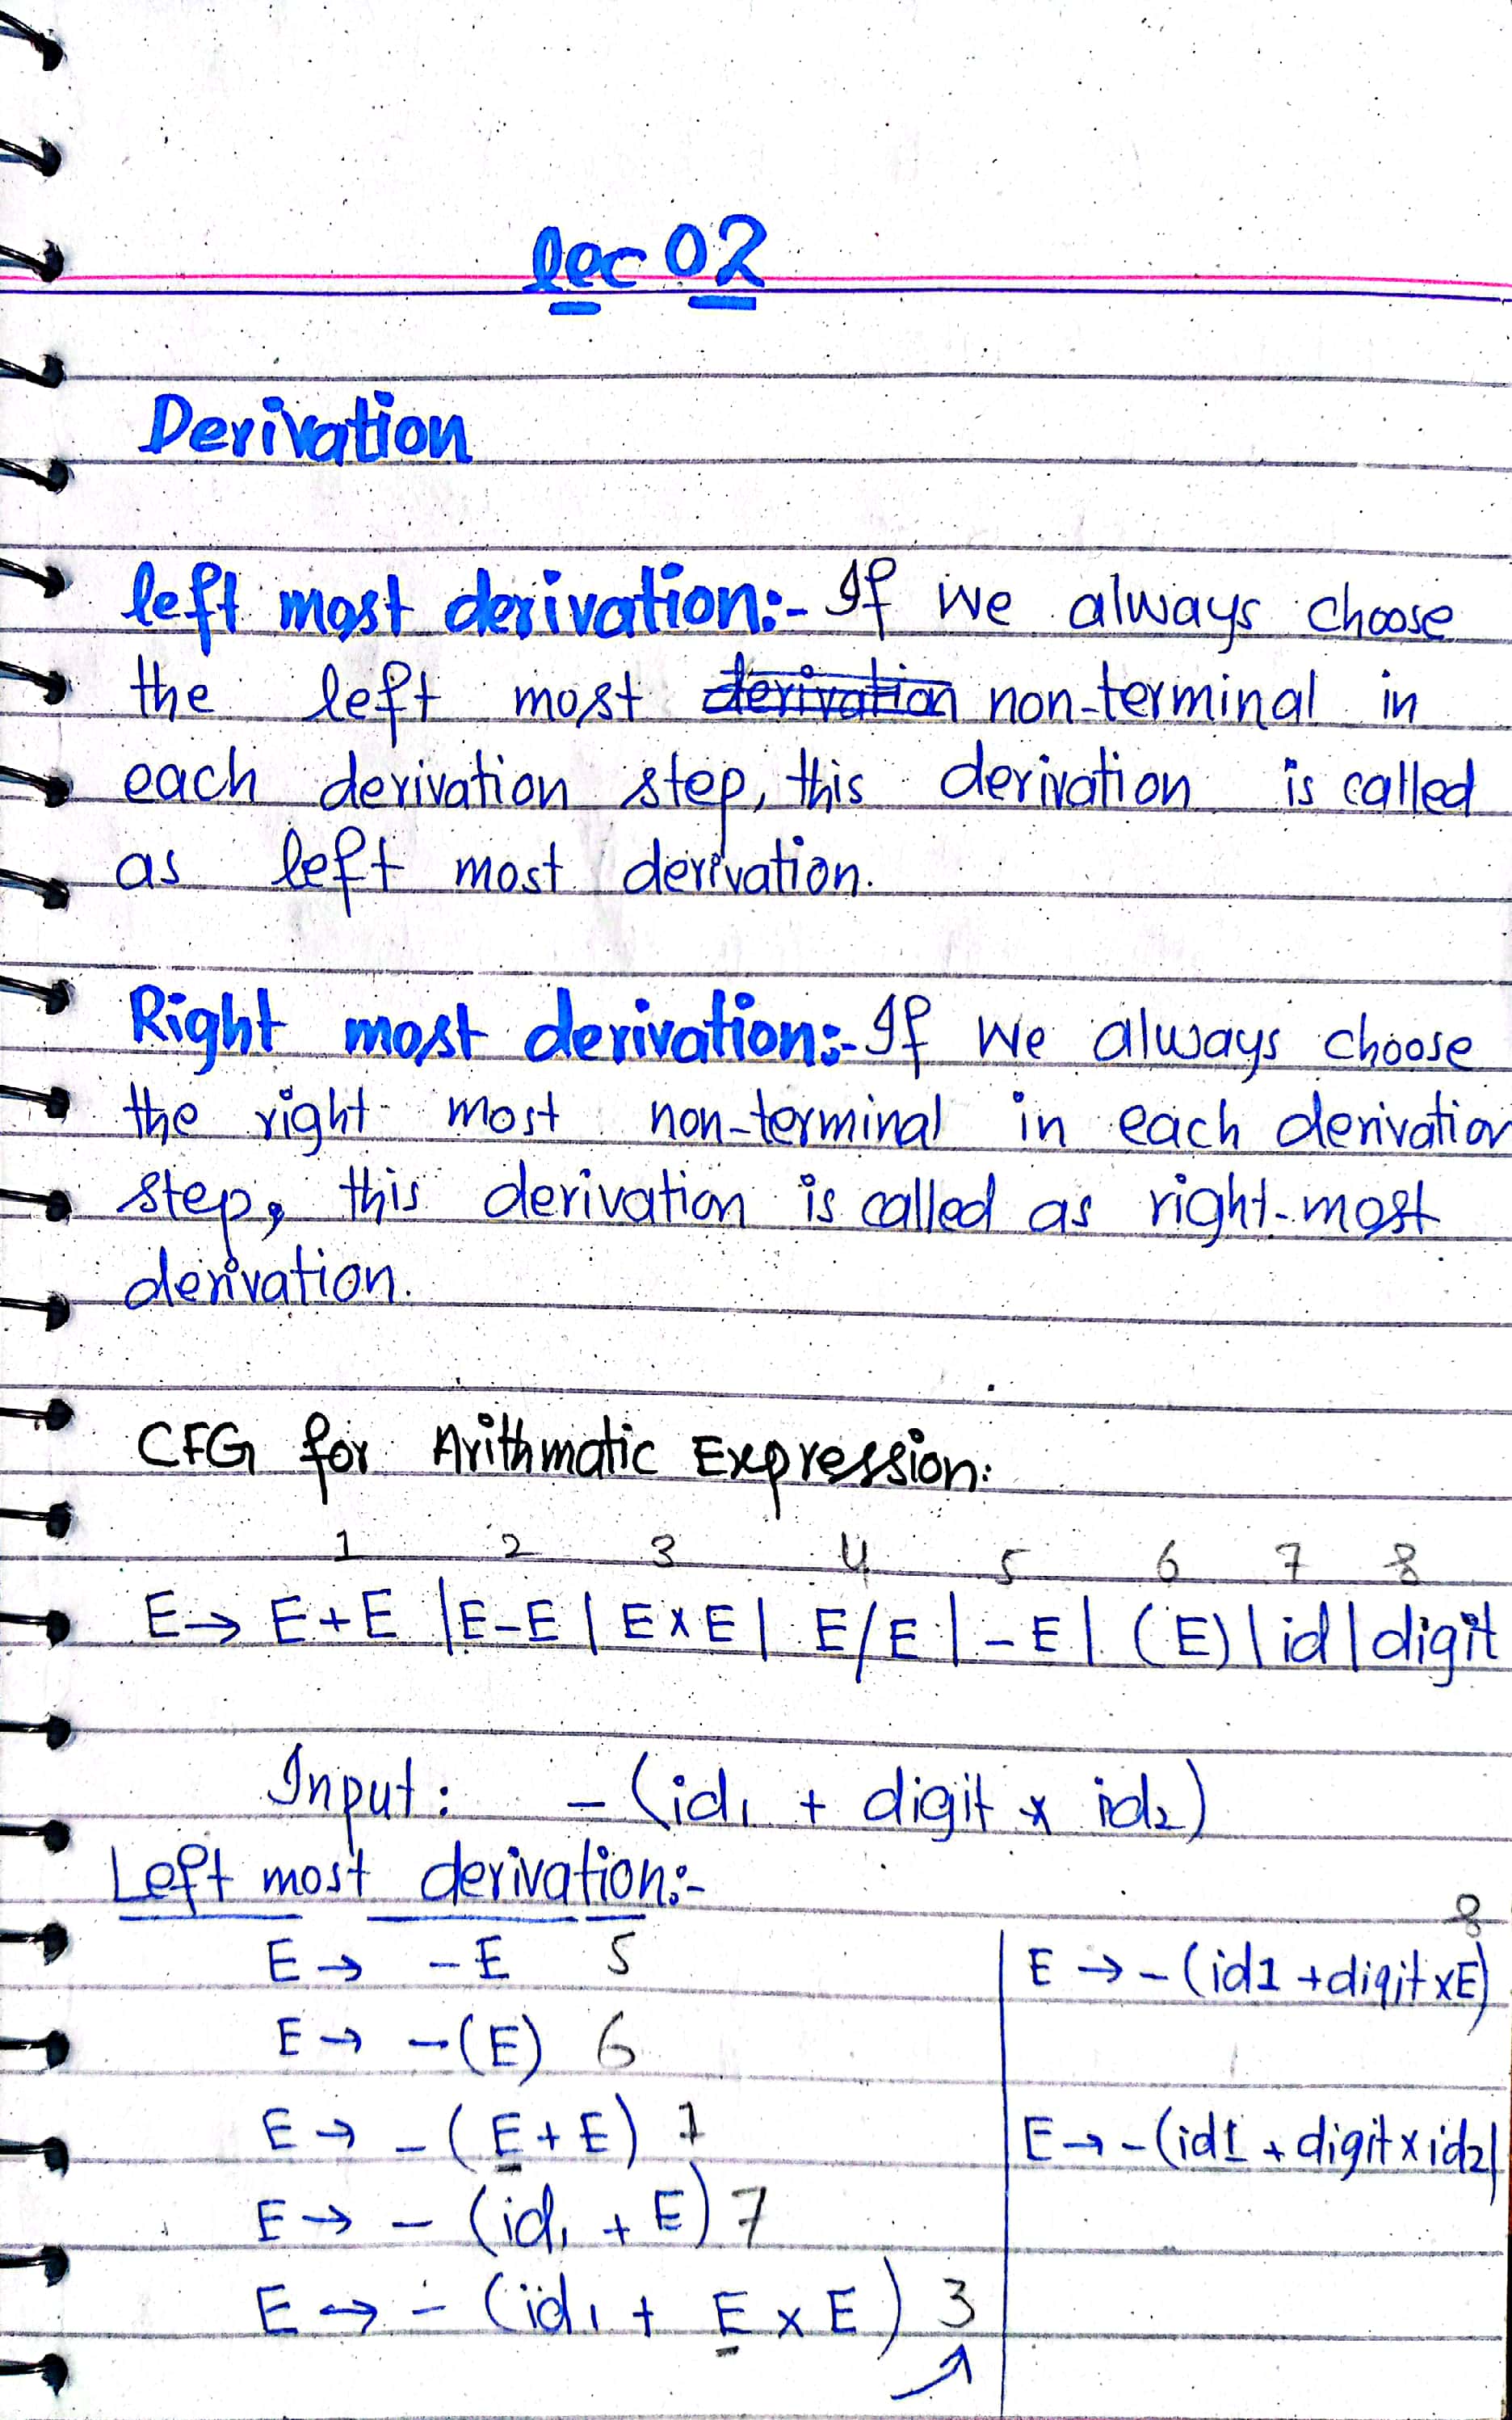 lec 02
Derivation
left most derivation:- If we always choose
the left most derivation non-terminal in
each derivation step, this derivation is called
as left most derivation.
Right most derivation:- If we always choose
the right most non-terminal in each derivation
step, this derivation is called as right-most
derivation.
CFG for Arithmatic Expression:
1 2 3 4 5 6 7 8
E → E+E |E-E | E×E | E/E | -E | (E) | id | digit
Input: - (id₁ + digit × id₂)
Left most derivation:-
E → -E 5
E → -(E) 6
E → - (E+E) 1
E → - (id₁ + E) 7
E → - (id₁ + E × E) 3
8
E → - (id1 + digit × E)
E → - (id1 + digit × id2)